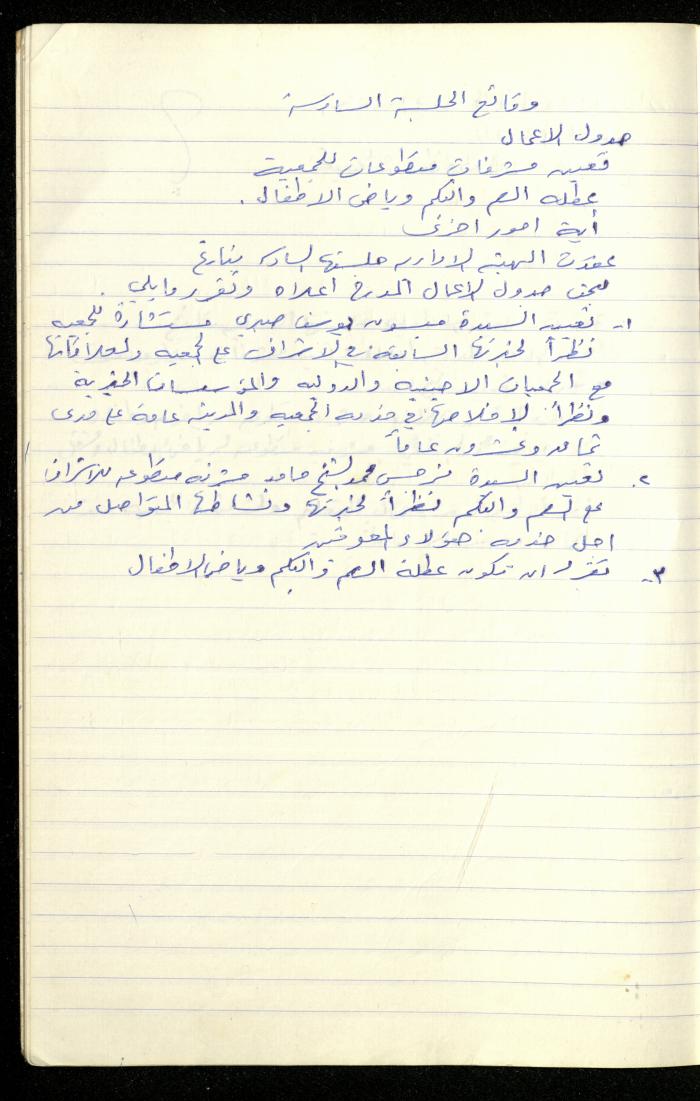 وقائع الجلسة السادسة
جدول الاعمال
تعيين مشرفات متطوعات للجمعية
عطله الصم والبكم ورياض الاطفال .
أية امور اخرى
عقدت الهيئه الاداريه جلستها السادسه بتاريخ
لبحث جدول الاعمال المدرج اعلاه وتقرر مايلي .
١- تعيين السيدة ميسون يوسف صبري مستشارة للجمعيه
نظراً لخبرتها السابقة في الاشراف على الجمعيه ولعلاقاتها
مع الجمعيات الاجنبيه والدوليه والمؤسسات الخيرية
ونظراً لإخلاصها في خدمه الجمعيه والمدينه عامة على مدى
ثمانيه وعشرون عاماً
٢. تعيين السيدة نرجس محمد الشيخ حامد مشرفه متطوعه للاشراف
على الصم والبكم نظراً لخبرتها ونشاطها المتواصل من
اجل خدمه هؤلاء المعوقين
٣- تقرر ان تكون عطلة الصم والبكم ورياض الاطفال